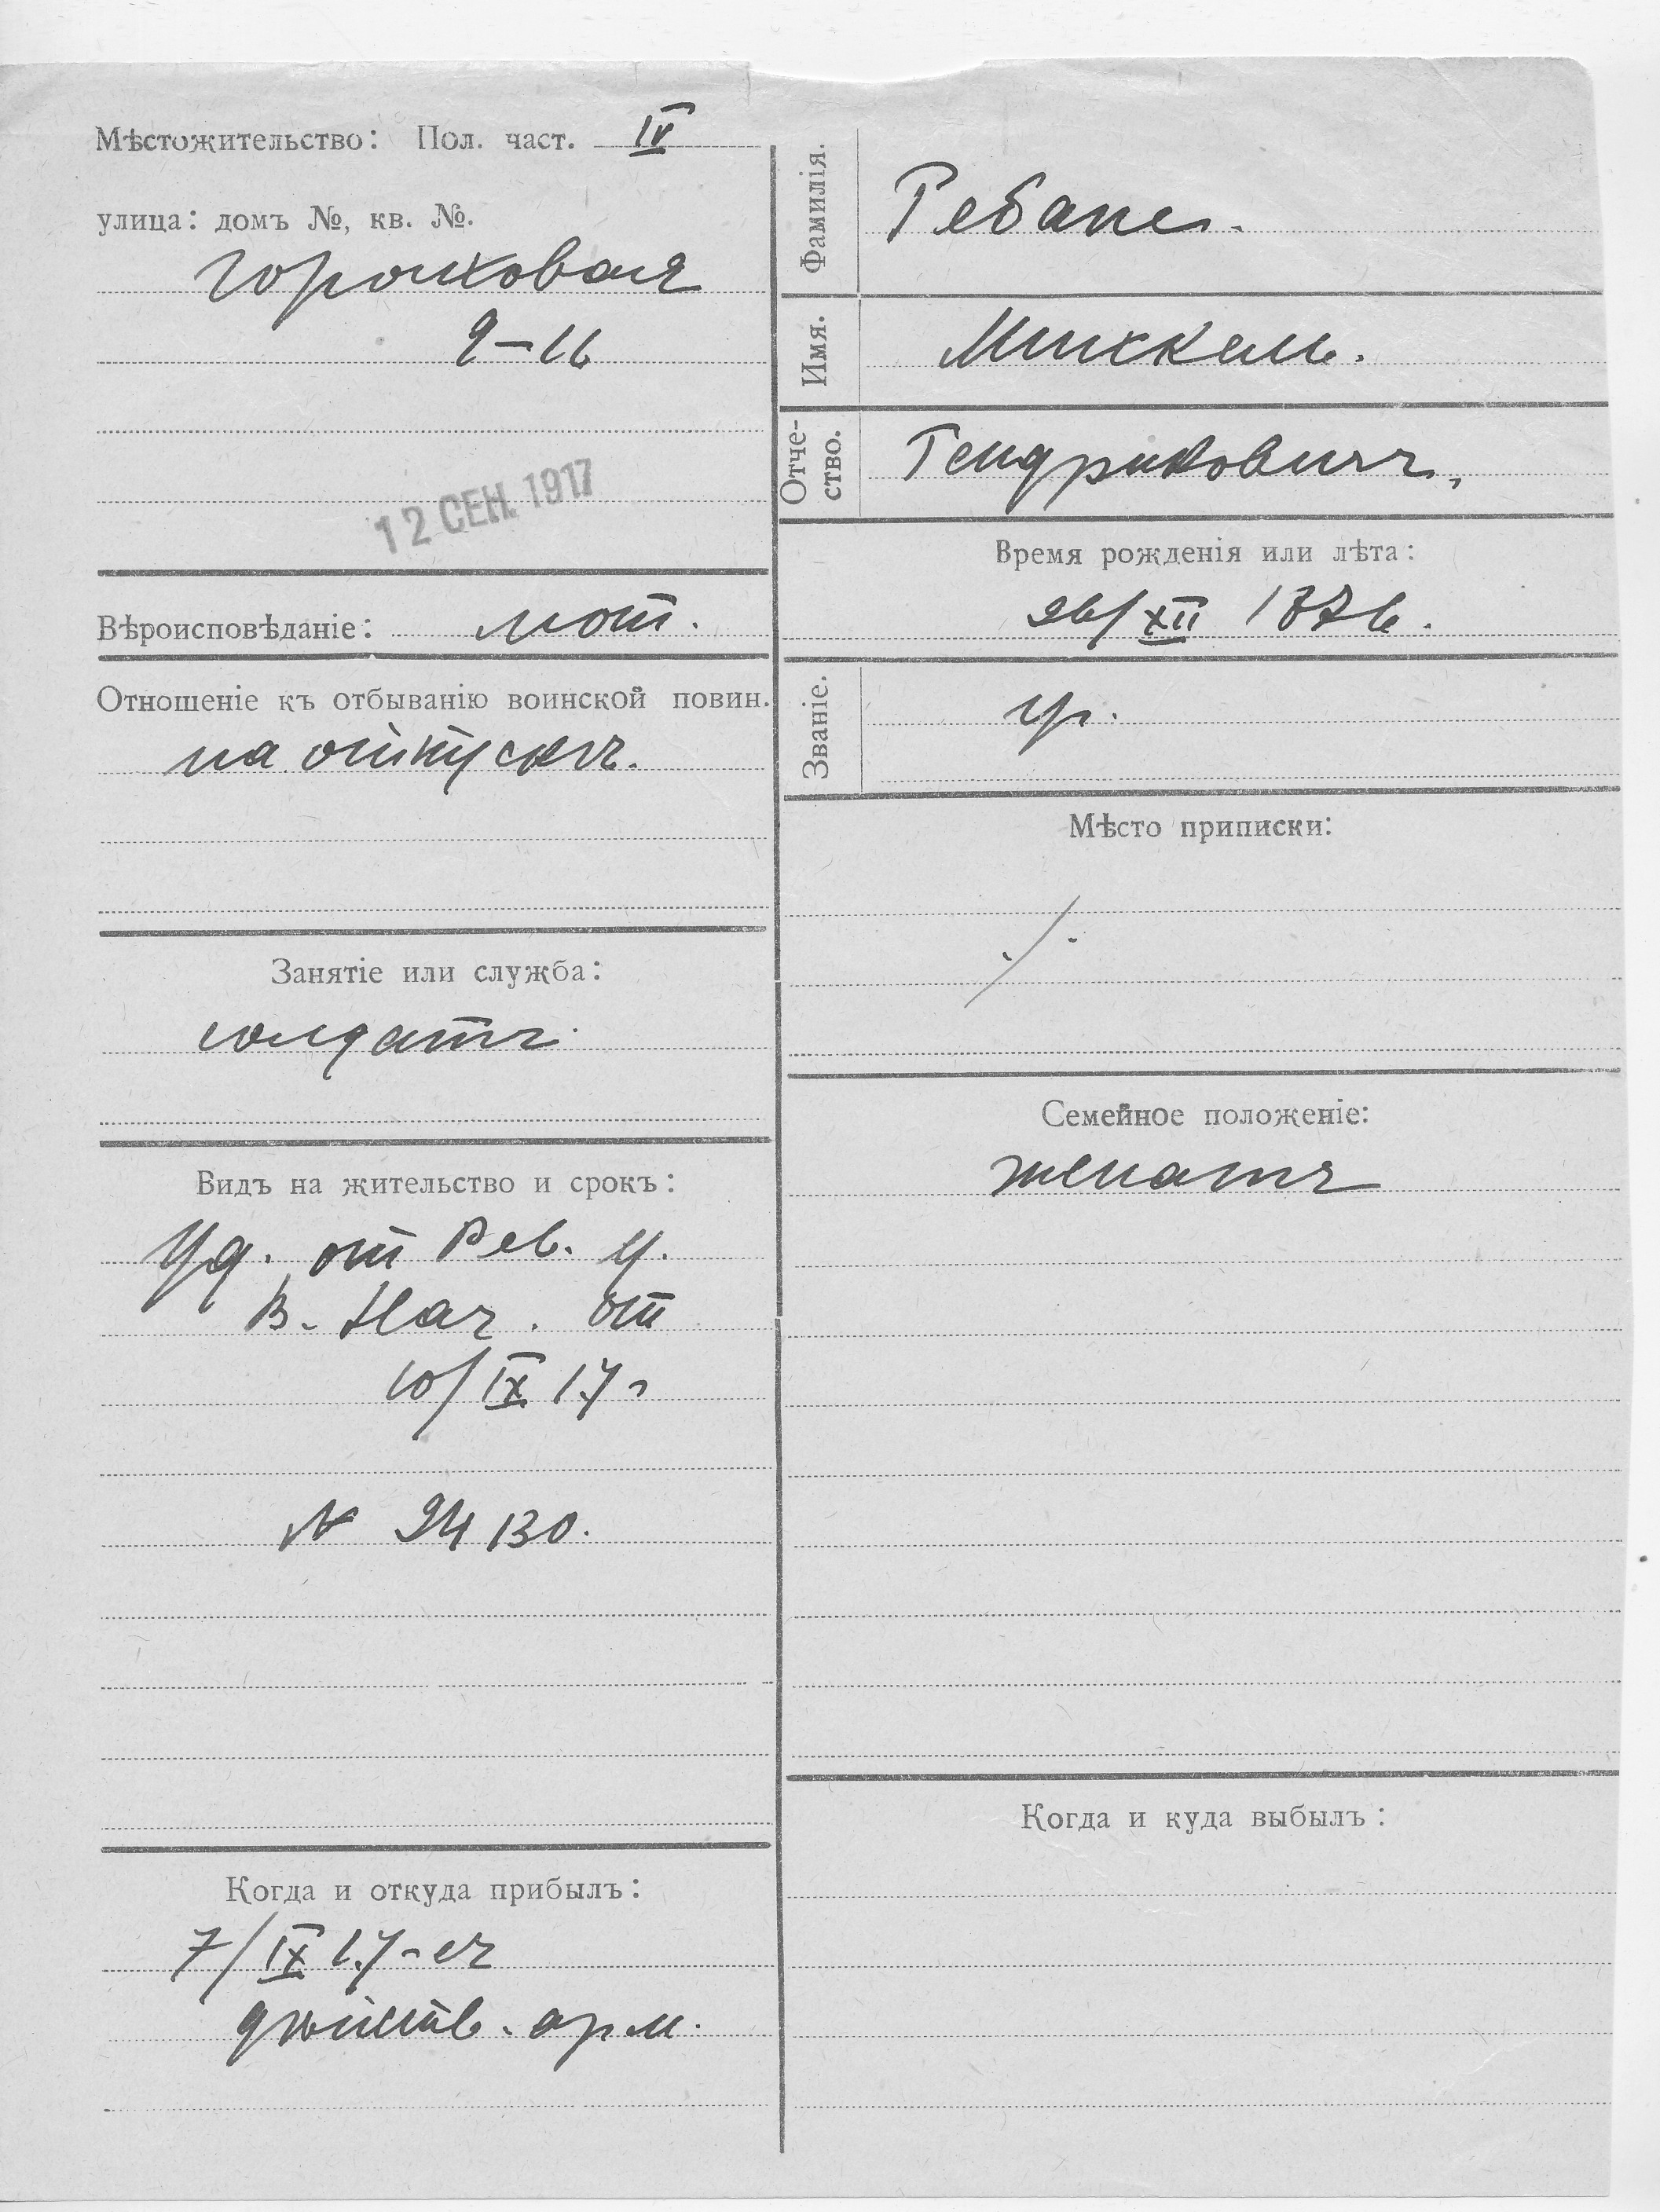 Мѣстожительство: Пол. част. IV
улица: домъ №, кв. №.
Гороховая
9–16
12 СЕН. 1917
Вѣроисповѣданіе: лют.
Отношеніе къ отбыванію воинской повин.
на отпускѣ.
Занятіе или служба:
солдатъ
Видъ на жительство и срокъ:
Уд. от Рев. У.
В. Нач. от
10/IX 17 г
N 24130.
Когда и откуда прибылъ:
7/IX 17 г съ
дѣйств. арм.
Фамилія. Ребане.
Имя. Миккель.
Отче-
ство. Гендриковичъ,
Время рожденія или лѣта:
26/XII 1876.
Званіе. кр.
Мѣсто приписки:
./.
Семейное положеніе:
женатъ
Когда и куда выбылъ: